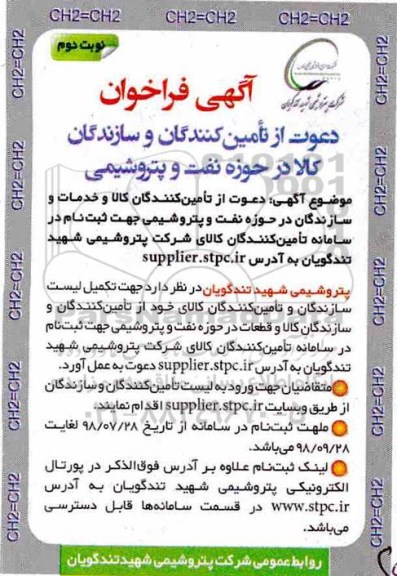 CH2=CH2 CH2=CH2 CH2=CH2 CH2=CH2
نوبت دوم
شرکت پتروشیمی شهید تندگویان
آگهی فراخوان
دعوت از تأمین‌کنندگان و سازندگان
کالا در حوزه نفت و پتروشیمی
موضوع آگهی: دعوت از تأمین‌کنندگان کالا و خدمات و
سازندگان در حوزه نفت و پتروشیمی جهت ثبت نام در
سامانه تأمین‌کنندگان کالای شرکت پتروشیمی شهید
تندگویان به آدرس supplier.stpc.ir
پتروشیمی شهید تندگویان در نظر دارد جهت تکمیل لیست
سازندگان و تأمین‌کنندگان کالای خود از تأمین‌کنندگان و
سازندگان کالا و قطعات در حوزه نفت و پتروشیمی جهت ثبت‌نام
در سامانه تأمین‌کنندگان کالای شرکت پتروشیمی شهید
تندگویان به آدرس supplier.stpc.ir دعوت به عمل آورد.
متقاضیان جهت ورود به لیست تأمین‌کنندگان و سازندگان
از طریق وبسایت supplier.stpc.ir اقدام نمایند.
ملهت ثبت‌نام در سامانه از تاریخ ۹۸/۰۷/۲۸ لغایت
۹۸/۰۹/۲۸ می‌باشد.
لینک ثبت‌نام علاوه بر آدرس فوق‌الذکر در پورتال
الکترونیکی پتروشیمی شهید تندگویان به آدرس
www.stpc.ir در قسمت سامانه‌ها قابل دسترسی
می‌باشد.
روابط عمومی شرکت پتروشیمی شهید تندگویان